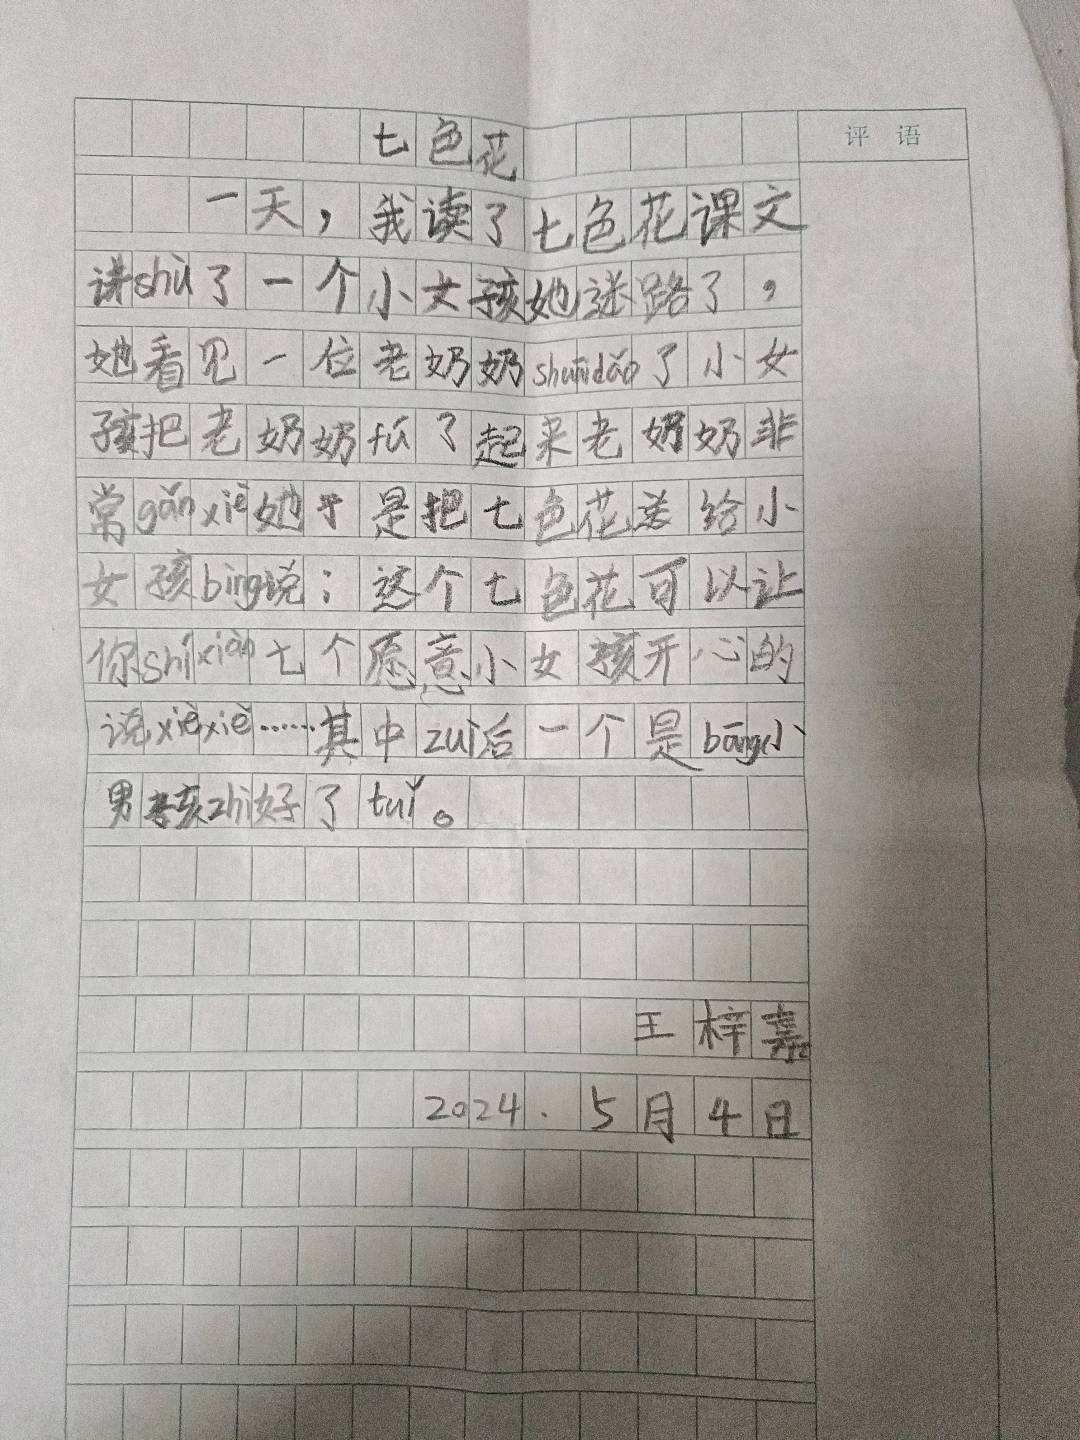 七色花
评语
一天，我读了七色花课文
讲shù了一个小女孩她迷路了，
她看见一位老奶奶shuāidǎo了小女
孩把老奶奶fú了起来老奶奶非
常gǎnxiè她于是把七色花送给小
女孩bìng说：这个七色花可以让
你shíxiàn七个愿意小女孩开心的
说xièxiè……其中zuì后一个是bāng小
男孩zhì好了tuǐ。
王梓嘉
2024.5月4日